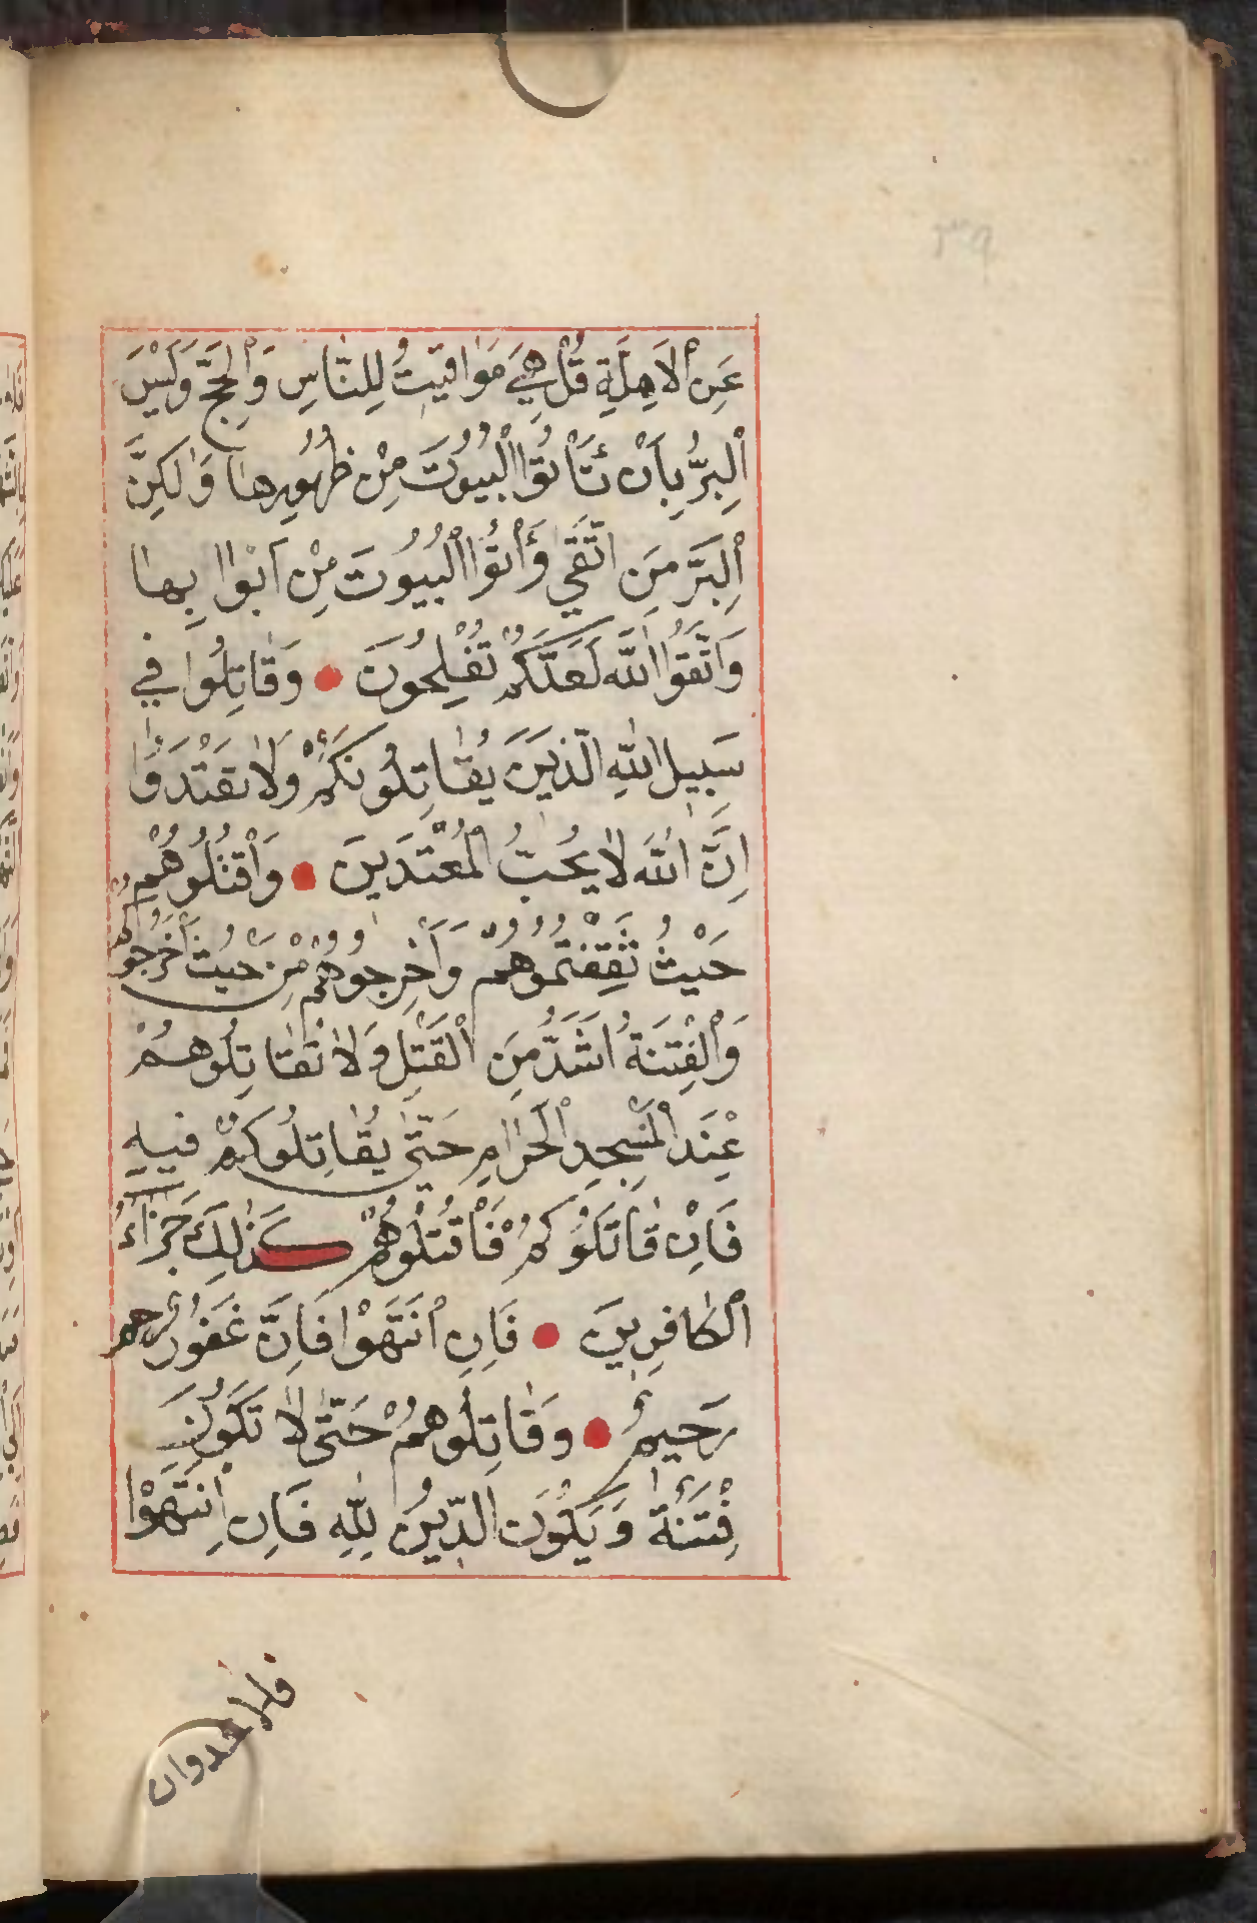 ٣٩
عَنِ ٱلْاَهِلَّةِ قُلْ هِيَ مَوَاقِيتُ لِلنَّاسِ وَٱلْحَجِّ وَلَيْسَ
ٱلْبِرُّ بِاَنْ تَأْتُوا ٱلْبُيُوتَ مِنْ ظُهُورِهَا وَلٰكِنَّ
ٱلْبِرَّ مَنِ اتَّقَىٰ وَأْتُوا ٱلْبُيُوتَ مِنْ اَبْوَابِهَا
وَاتَّقُوا اللَّهَ لَعَلَّكُمْ تُفْلِحُونَ وَقَاتِلُوا فِي
سَبِيلِ اللَّهِ الَّذِينَ يُقَاتِلُونَكُمْ وَلَا تَعْتَدُوا
اِنَّ اللَّهَ لَا يُحِبُّ الْمُعْتَدِينَ وَاقْتُلُوهُمْ
حَيْثُ ثَقِفْتُمُوهُمْ وَاَخْرِجُوهُمْ مِنْ حَيْثُ اَخْرَجُوكُمْ
وَٱلْفِتْنَةُ اَشَدُّ مِنَ ٱلْقَتْلِ وَلَا تُقَاتِلُوهُمْ
عِنْدَ الْمَسْجِدِ الْحَرَامِ حَتَّىٰ يُقَاتِلُوكُمْ فِيهِ
فَاِنْ قَاتَلُوكُمْ فَاقْتُلُوهُمْ كَذٰلِكَ جَزَاءُ
ٱلْكَافِرِينَ فَاِنِ ٱنْتَهَوْا فَاِنَّ غَفُورٌ رحيم
رَحِيمٌ وَقَاتِلُوهُمْ حَتَّىٰ لَا تَكُونَ
فِتْنَةٌ وَيَكُونَ الدِّينُ لِلَّهِ فَاِنِ انْتَهَوْا
فلا عدوان